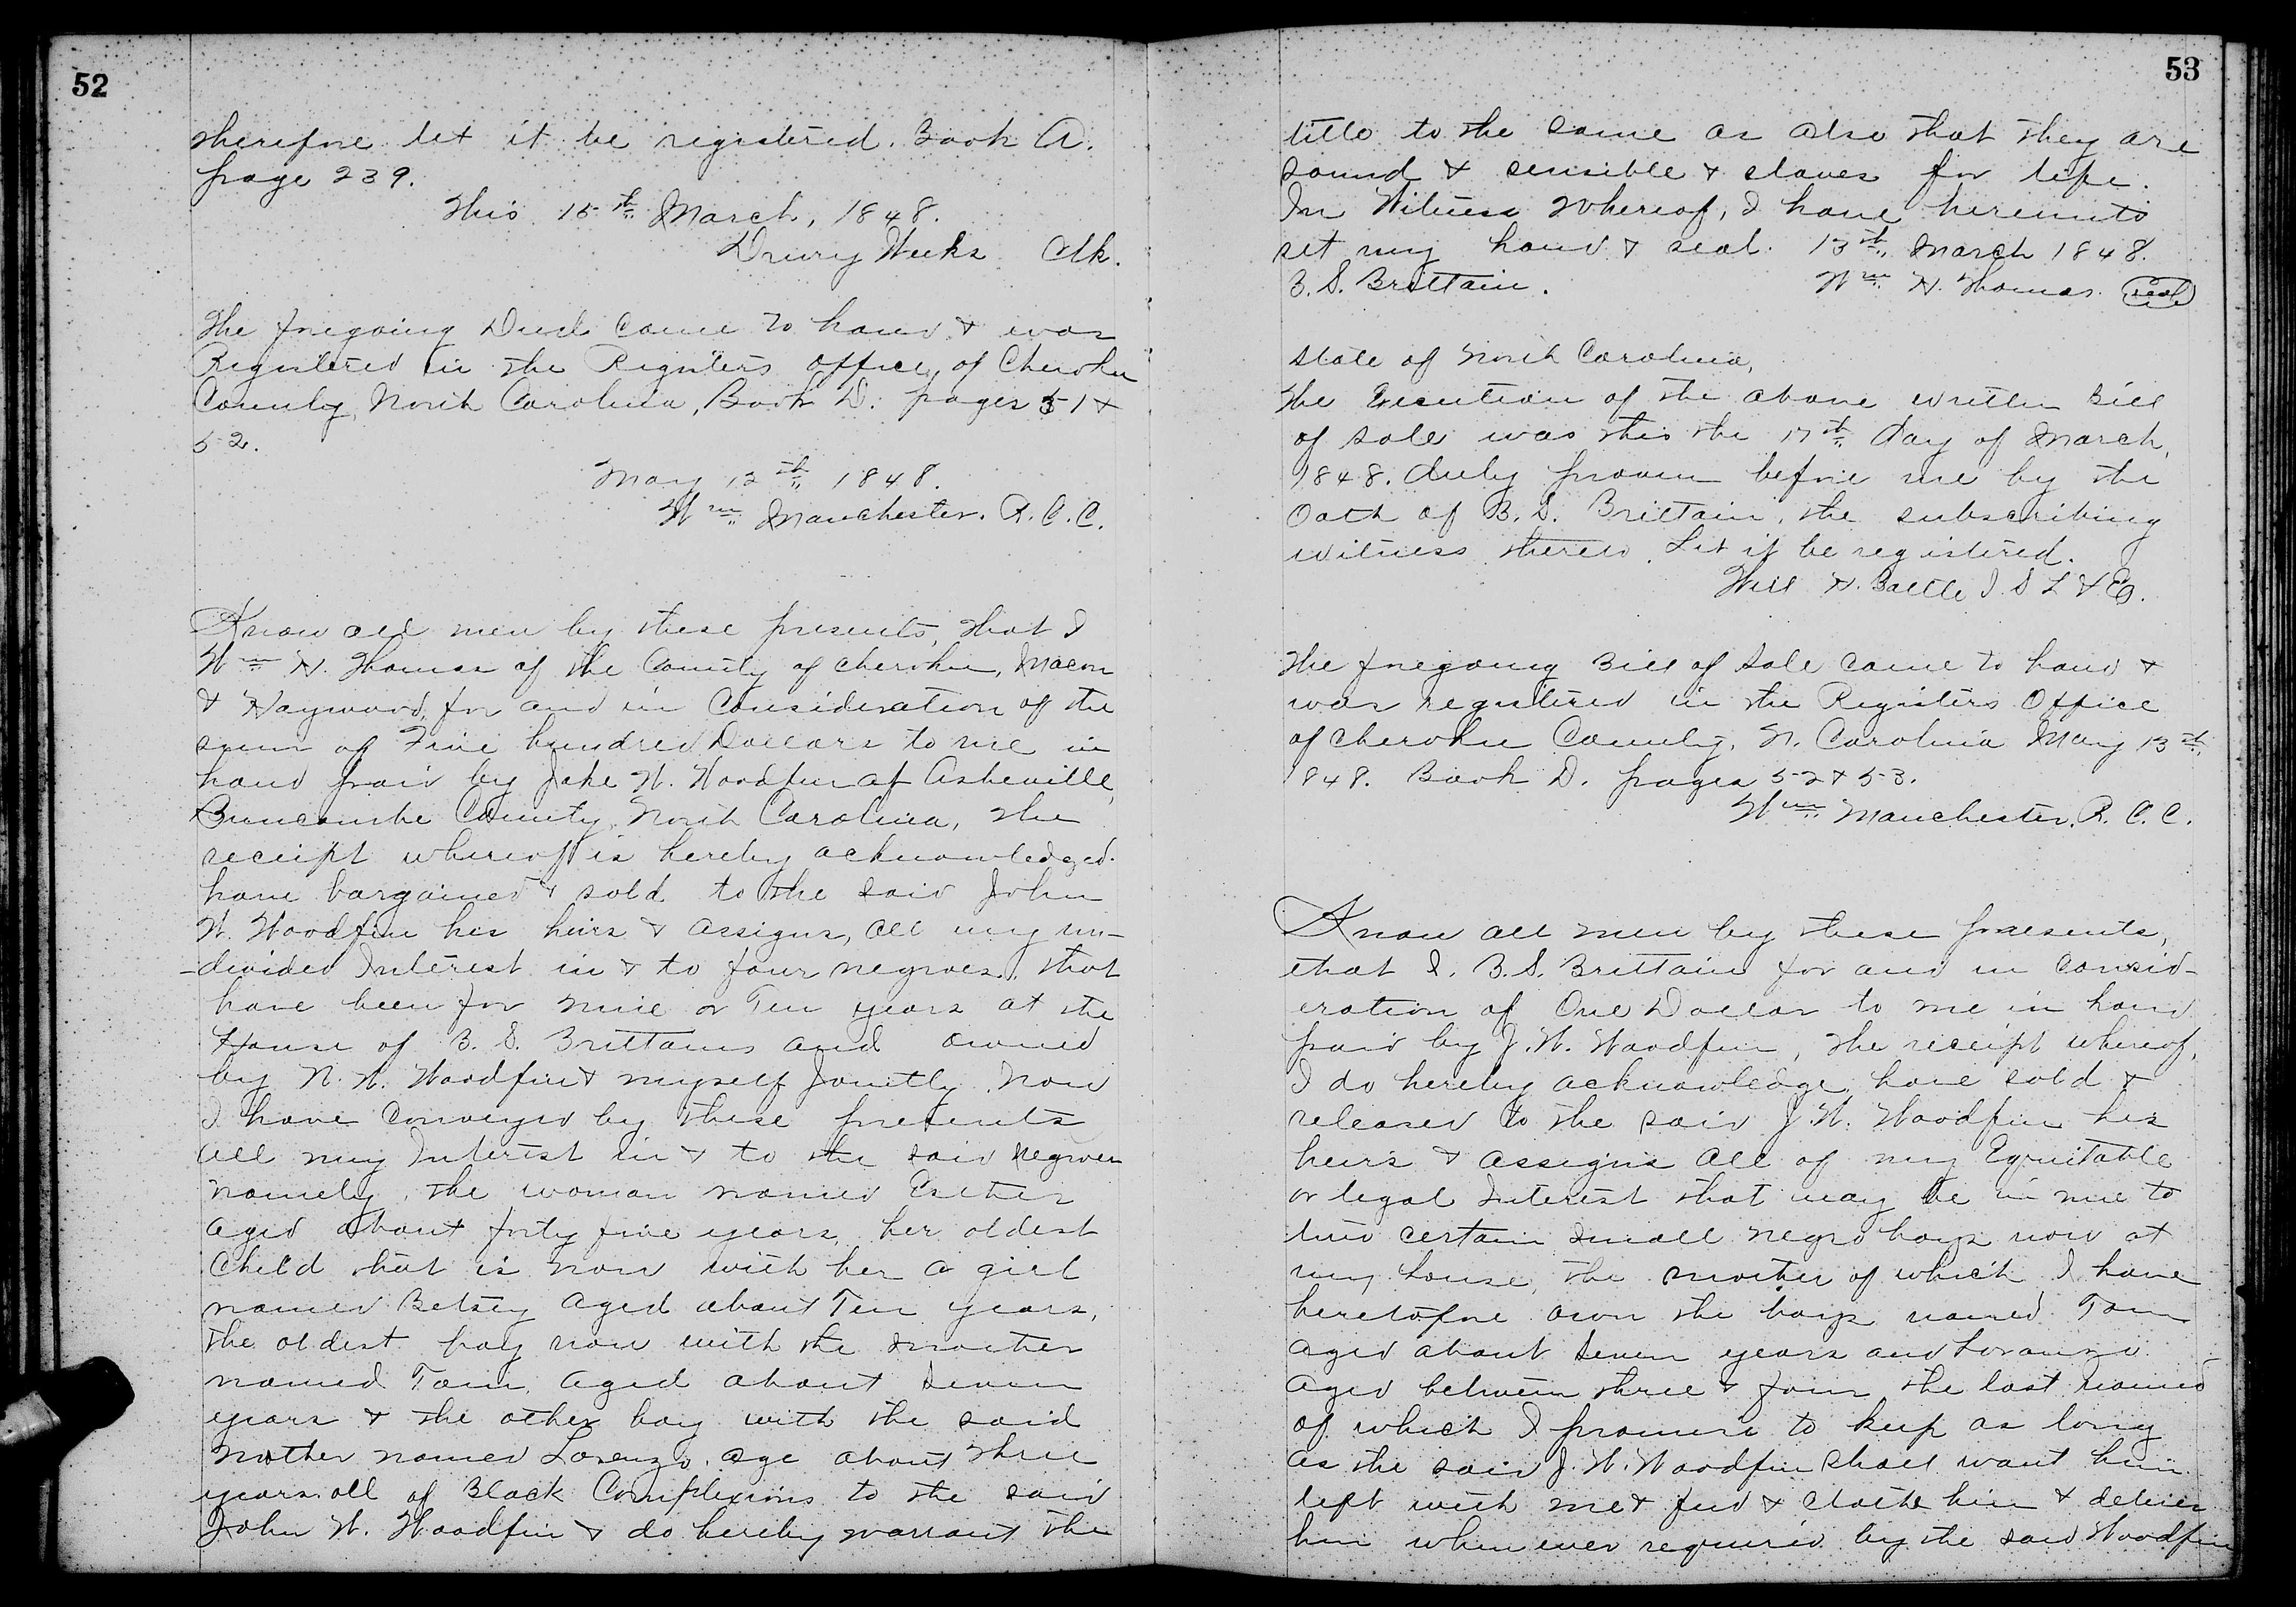 52
therefore let it be registered. Book A.
page 239.
This 15th March, 1848.
Drury Weeks Clk.
The foregoing Deed came to hand & was
Registered in the Registers office of Cherokee
County, North Carolina, Book D. pages 51 &
52.
May 12th 1848.
Wm Manchester. R. C. C.
Know all men by these presents, that I
Wm H. Thomas of the County of Cherokee, Macon
& Haywood, for and in Consideration of the
sum of Five hundred Dollars to me in
hand paid by John W. Woodfin of Asheville,
Buncombe County, North Carolina, the
receipt whereof is hereby acknowledged.
have bargained & sold to the said John
W. Woodfin his heirs & assigns, all my un-
-divided Interest in & to four negroes, that
have been for nine or Ten years at the
House of B. S. Brittains and owned
by N. W. Woodfin & myself Jointly. Now
I have Conveyed by these presents
all my Interest in & to the said negroes
namely, the woman named Esther
aged about forty five years, her oldest
Child that is now with her a girl
named Betsey aged about Ten years,
the oldest boy now with the mother
named Tom, aged about seven
years & the other boy with the said
mother named Lorenzo. age about three
years all of Black Complexions to the said
John W. Woodfin & do hereby warrant the
53
title to the same as also that they are
sound & sensible & slaves for life.
In Witness Whereof, I have hereunto
set my hand & seal. 13th March 1848.
B. S. Brittain. Wm H. Thomas. seal
State of North Carolina,
The Execution of the above written Bill
of sale was this the 17th day of March,
1848. duly proven before me by the
Oath of B. S. Brittain, the subscribing
witness thereto. Let it be registered.
Will H. Battle J S L & E.
The foregoing Bill of Sale came to hand &
was registered in the Registers Office
of Cherokee County, N. Carolina May 13th
1848. Book D. pages 52 & 53.
Wm Manchester. R. C. C.
Know all men by these presents,
that I. B. S. Brittain for and in consid-
eration of One Dollar to me in hand
paid by J. W. Woodfin, the receipt whereof,
I do hereby acknowledge, have sold &
released to the said J. W. Woodfin his
heirs & assigns all of my Equitable
or legal Interest that may be in me to
two certain small negro boys now at
my house, the mother of which I have
heretofore own the boys named Tom
aged about seven years and Loranzo
aged between three & four the last named
of which I promise to keep as long
as the said J. W. Woodfin shall want him
left with me & feed & clothe him & deliver
him when ever required by the said Woodfin